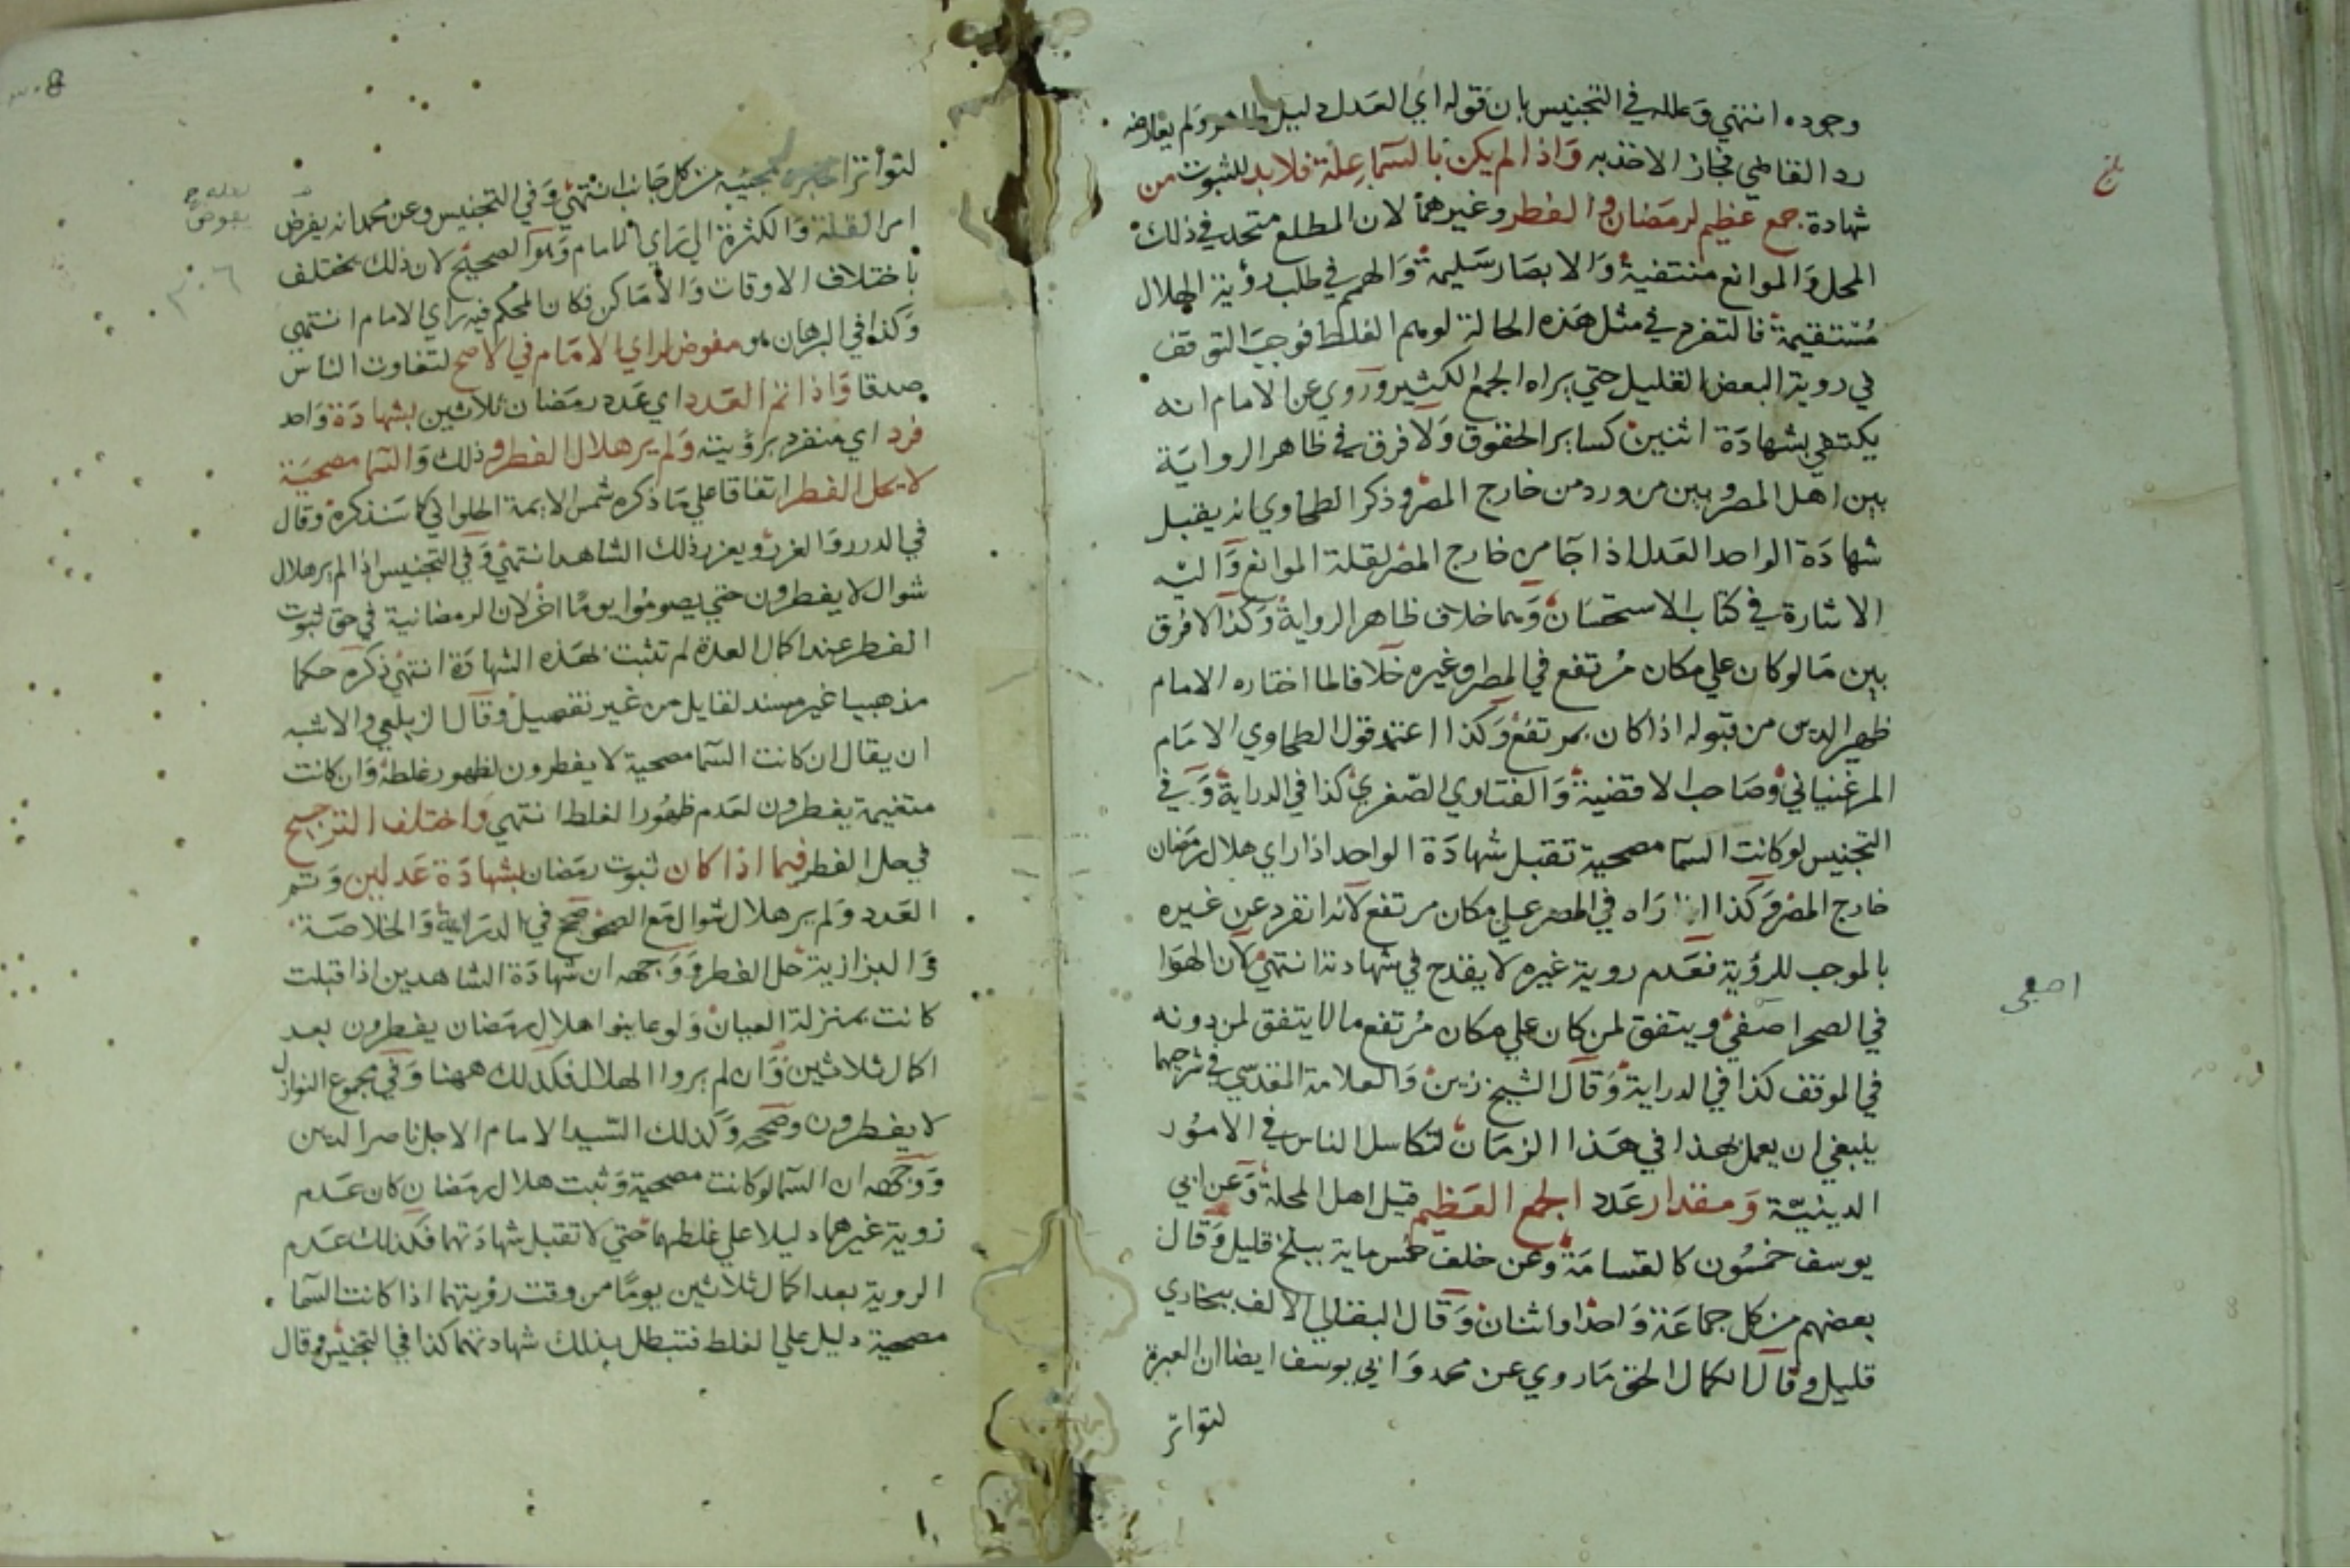 وجوده انتهي وعلله في التجنيس بان قوله اي العدل دليل ظاهر ولم يعارضه
رد القاضي فجاز الاخذ به واذا لم يكن بالسما علة فلا بد للثبوت من
شهادة جمع عظيم لرمضان والفطر وغيرهما لان المطلع متحد في ذلك
المحل والموانع منتفية والابصار سليمة والهمم في طلب رؤية الهلال
مستقيمة فالتفرد في مثل هذه الحالة يوهم الغلط فوجب التوقف
في روية البعض القليل حتي يراه الجمع الكثير وروي عن الامام انه
يكتفي بشهادة اثنين كساير الحقوق ولا فرق في ظاهر الرواية
بين اهل المصر وبين من ورد من خارج المصر وذكر الطحاوي انه يقبل
شهادة الواحد العدل اذا جا من خارج المصر لقلة الموانع واليه
الاشارة في كتاب الاستحسان وهما خلاف ظاهر الرواية وكذا لا فرق
بين ما لو كان علي مكان مرتفع في المصر وغيره خلافا لما اختاره الامام
ظهير الدين من قبوله اذا كان بمرتفع وكذا اعتمد قول الطحاوي الامام
المرغيناني وصاحب الاقضية والفتاوي الصغري كذا في الدراية وفي
التجنيس لو كانت السما مصحية تقبل شهادة الواحد اذا راي هلال رمضان
خارج المصر وكذا اذا راه في المصر علي مكان مرتفع لانه انفرد عن غيره
بالموجب للرؤية فعدم روية غيره لا يقدح في شهادته انتهي لان الهوا
في الصحرا صفي ويتفق لمن كان علي مكان مرتفع ما لا يتفق لمن دونه
في الموقف كذا في الدراية وقال الشيخ زين والعلامة المقدسي في شرحيهما
ينبغي ان يعمل بهذا في هذا الزمان لتكاسل الناس في الامور
الدينية ومقدار عدد الجمع العظيم قيل اهل المحلة وعن ابي
يوسف خمسون كالقسامة وعن خلف خمس ماية ببلخ قليل وقال
بعضهم من كل جماعة واحدا واثنان وقال البقالي الالف ببخاري
قليل وقال الكمال الحق ما روي عن محمد وابي يوسف ايضا ان العبرة
لتواتر
بلغ
اصفي
لتواتر الخبر ومجيئه من كل جانب انتهي وفي التجنيس وعن محمد انه يفرض
امر القلة والكثرة الي راي الامام وهو الصحيح لان ذلك يختلف
باختلاف الاوقات والاماكن فكان المحكم فيه راي الامام انتهي
وكذا في البرهان هو مفوض لراي الامام في الاصح لتفاوت الناس
صدقا واذا تم العدد اي عدد رمضان ثلاثين بشهادة واحد
فرد اي منفرد برؤيته ولم ير هلال الفطر و ذلك والسما مصحية
لا يحل الفطر اتفاقا علي ما ذكره شمس الايمة الحلواني كما سنذكره وقال
في الدرر والغرر ويعزر ذلك الشاهد انتهي وفي التجنيس اذا لم ير هلال
شوال لا يفطرون حتي يصوموا يوما اخر لان الرمضانية في حق ثبوت
الفطر عند اكمال العدة لم تثبت بهذه الشهادة انتهي ذكره حكما
مذهبيا غير مسند لقايل من غير تفصيل وقال الزيلعي والاشبه
ان يقال ان كانت السما مصحية لا يفطرون لظهور غلطه وان كانت
متغيمة يفطرون لعدم ظهور الغلط انتهي واختلف الترجيح
في حل الفطر فيما اذا كان ثبوت رمضان بشهادة عدلين وتم
العدد ولم ير هلال شوال مع الصحو صحح في الدراية والخلاصة
والبزازية حل الفطر ووجهه ان شهادة الشاهدين اذا قبلت
كانت بمنزلة العيان ولو عاينوا هلال رمضان يفطرون بعد
اكمال ثلاثين وان لم يروا الهلال فكذلك ههنا وفي مجموع النوازل
لا يفطرون وصححه وكذلك السيد الامام الاجل ناصر الدين
ووجهه ان السما لو كانت مصحية وثبت هلال رمضان كان عدم
روية غيرهما دليلا علي غلطهما حتي لا تقبل شهادتهما فكذلك عدم
الروية بعد اكمال ثلاثين يوما من وقت رؤيتهما اذا كانت السما
مصحية دليل علي الغلط فتبطل بذلك شهادتهما كذا في التجنيس وقال
لعله
يفوض
٣٠٦